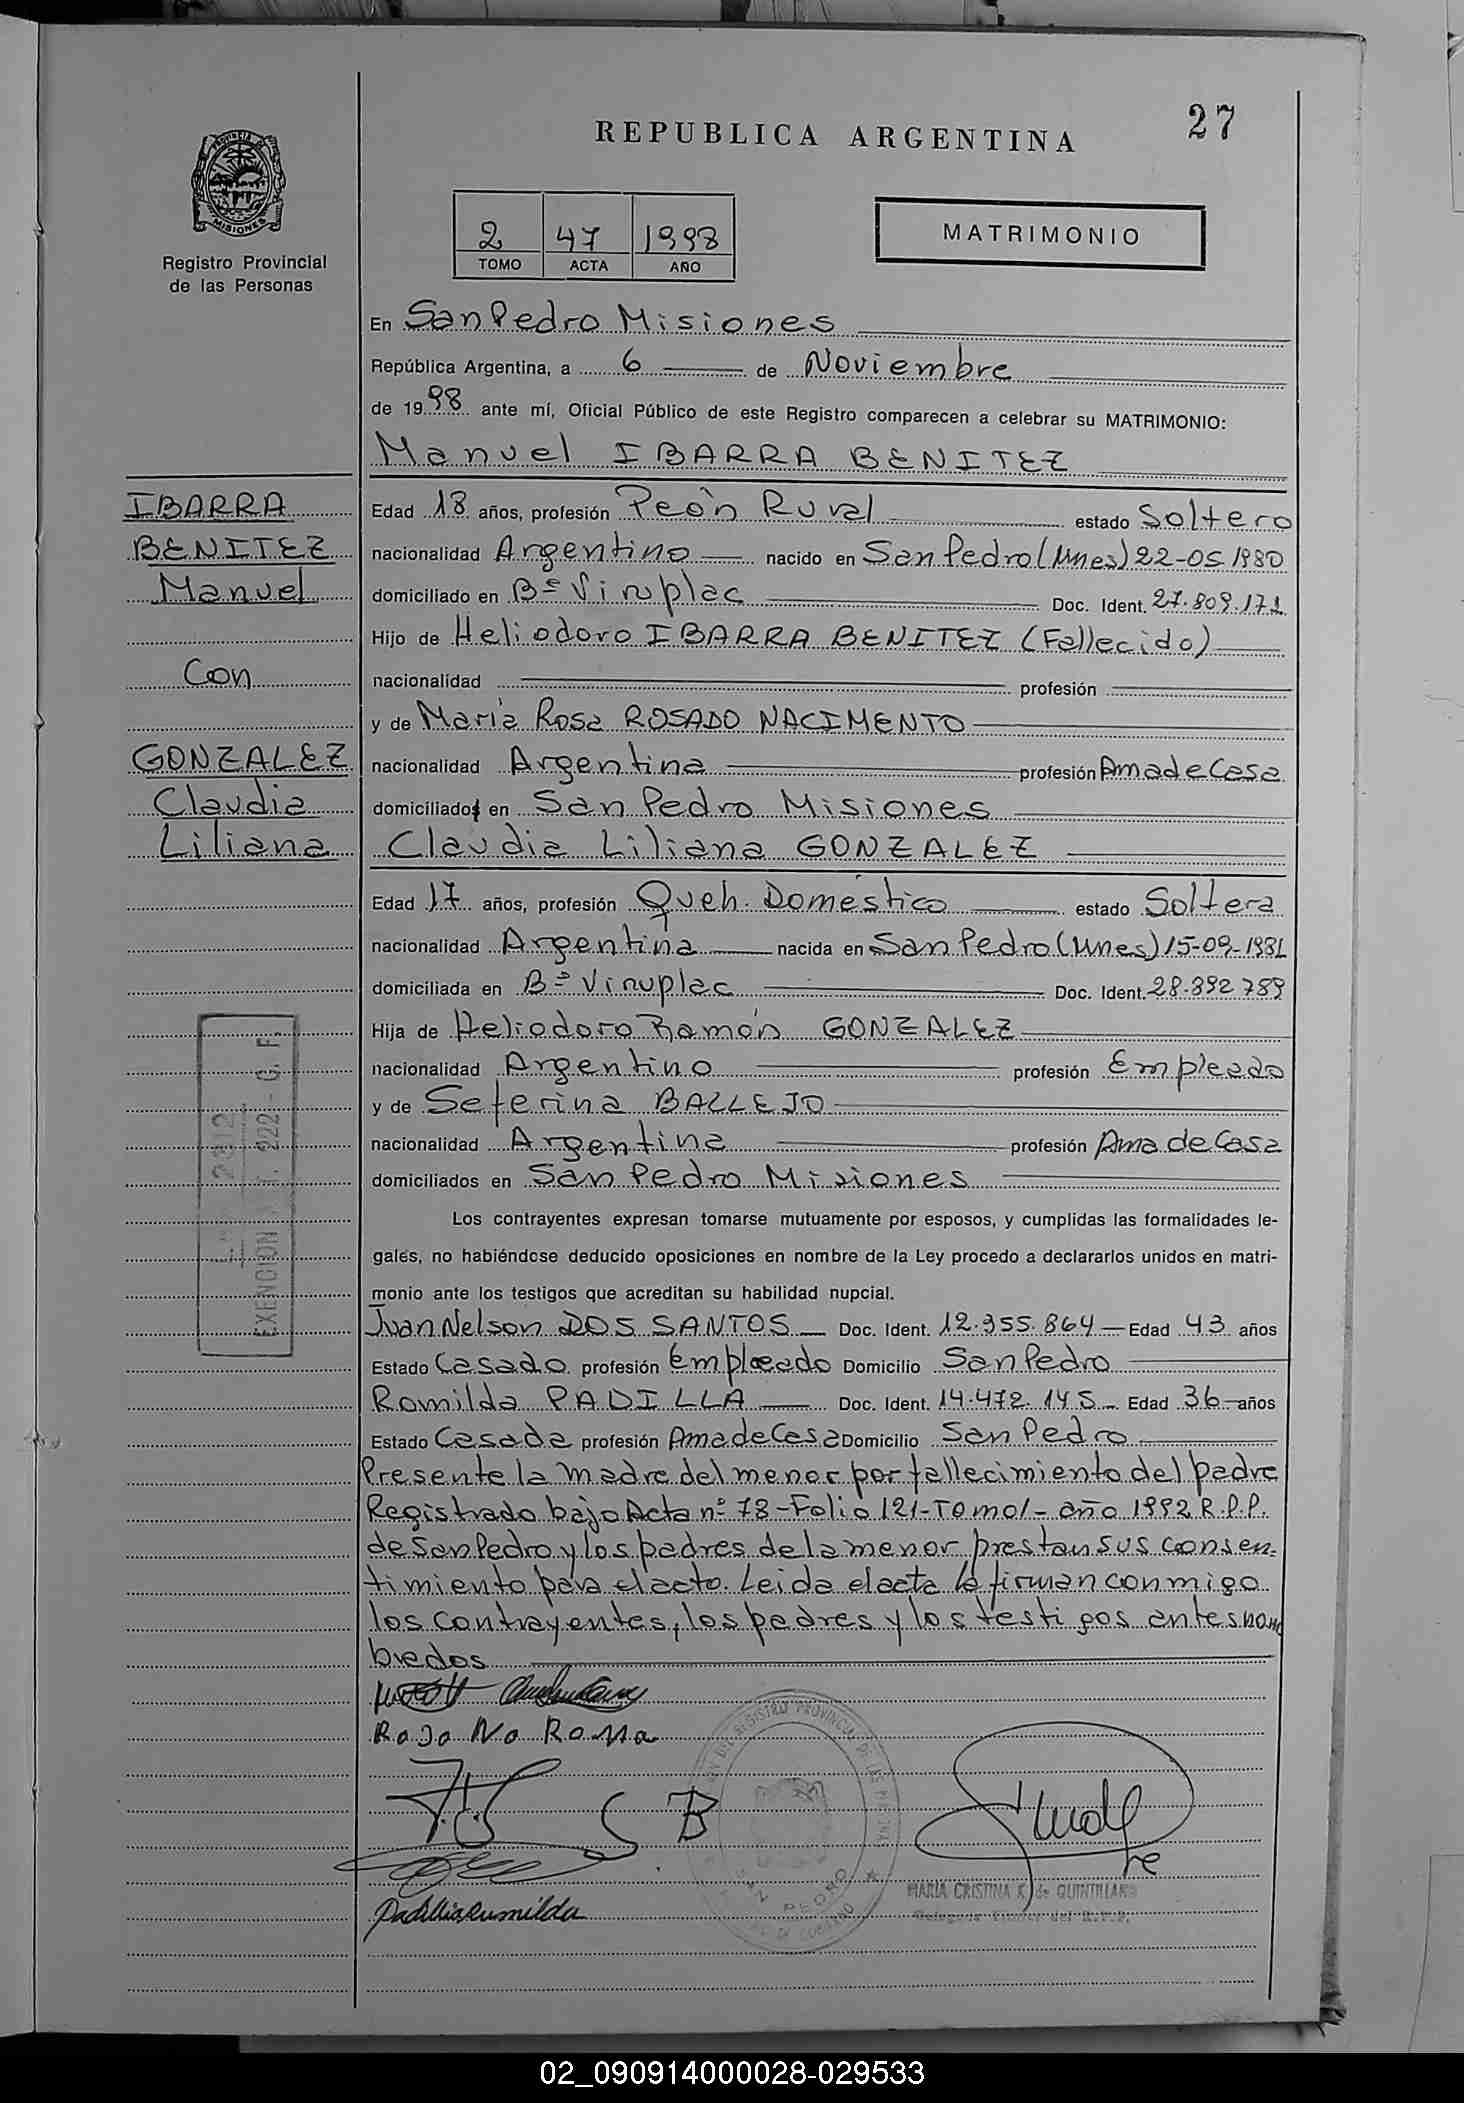 27
REPUBLICA ARGENTINA
PROVINCIA DE
MISIONES
Registro Provincial
de las Personas
2 47 1998
TOMO ACTA AÑO
MATRIMONIO
En San Pedro Misiones
República Argentina, a 6 de Noviembre
de 1998 ante mí, Oficial Público de este Registro comparecen a celebrar su MATRIMONIO:
Manuel IBARRA BENITEZ
IBARRA
BENITEZ
Manuel
Con
GONZALEZ
Claudia
Liliana
Edad 18 años, profesión Peón Rural estado Soltero
nacionalidad Argentino nacido en San Pedro (Mnes) 22-05-1980
domiciliado en Bº Viruplac Doc. Ident. 27.809.171
Hijo de Heliodoro IBARRA BENITEZ (Fallecido)
nacionalidad profesión
y de María Rosa ROSADO NACIMENTO
nacionalidad Argentina profesión Ama de Casa
domiciliados en San Pedro Misiones
Claudia Liliana GONZALEZ
Edad 17 años, profesión Queh. Doméstico estado Soltera
nacionalidad Argentina nacida en San Pedro (Mnes) 15-09-1981
domiciliada en Bº Viruplac Doc. Ident. 28.392.789
Hija de Heliodoro Ramón GONZALEZ
nacionalidad Argentino profesión Empleado
y de Seferina BALLEJO
nacionalidad Argentina profesión Ama de Casa
domiciliados en San Pedro Misiones
Los contrayentes expresan tomarse mutuamente por esposos, y cumplidas las formalidades le-
gales, no habiéndose deducido oposiciones en nombre de la Ley procedo a declararlos unidos en matri-
monio ante los testigos que acreditan su habilidad nupcial.
Juan Nelson DOS SANTOS Doc. Ident. 12.955.864 Edad 43 años
Estado Casado profesión Empleado Domicilio San Pedro
Romilda PADILLA Doc. Ident. 14.472.145 Edad 36 años
Estado Casada profesión Ama de Casa Domicilio San Pedro
Presente la madre del menor por fallecimiento del padre
Registrado bajo Acta nº 78-Folio 121-Tomo 1-año 1992 R.P.P.
de San Pedro y los padres de la menor prestan sus consen-
timiento para el acto. Leida el acta la firman conmigo
los contrayentes, los padres y los testigos antes nom
brados
EXENCION
222 - G. F.
Rosa No Rossa
S B
Padillia Rumilda
SAN PEDRO
MARIA CRISTINA K. de QUINTILLAN
Titular del R.P.P.
02_090914000028-029533